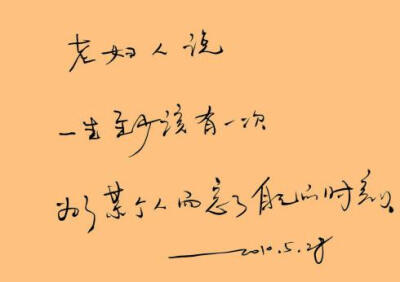 老妇人说
一生至少该有一次
为了某个人而忘了自己的时刻。
——2010.5.28